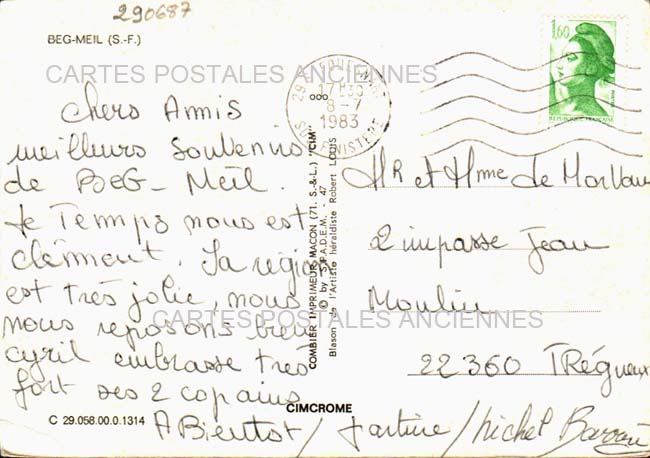 290687
BEG-MEIL (S.-F.)
CARTES POSTALES ANCIENNES
Chers Amis
meilleurs Souvenirs
de BEG-Meil.
Le Temps nous est
clément. La région
est très jolie, nous
nous reposons bien
Cyril embrasse très
fort ses 2 copains
A Bientot / Martine / Michel
C 29.058.00.0.1314
CIMCROME
COMBIER IMPRIMEUR MACON (71. S.-&-L.) "CIM"
© by "S.P.A.D.E.M." - 47
Blason de l'Artiste héraldiste Robert LOUIS
17H30
8-7
1983
SUD FINISTERE
1,60
REPUBLIQUE FRANÇAISE
Mr et Mme de Morvan
2 impasse Jean
Moulin
22360 TRégueux
CARTES POSTALES ANCIENNES